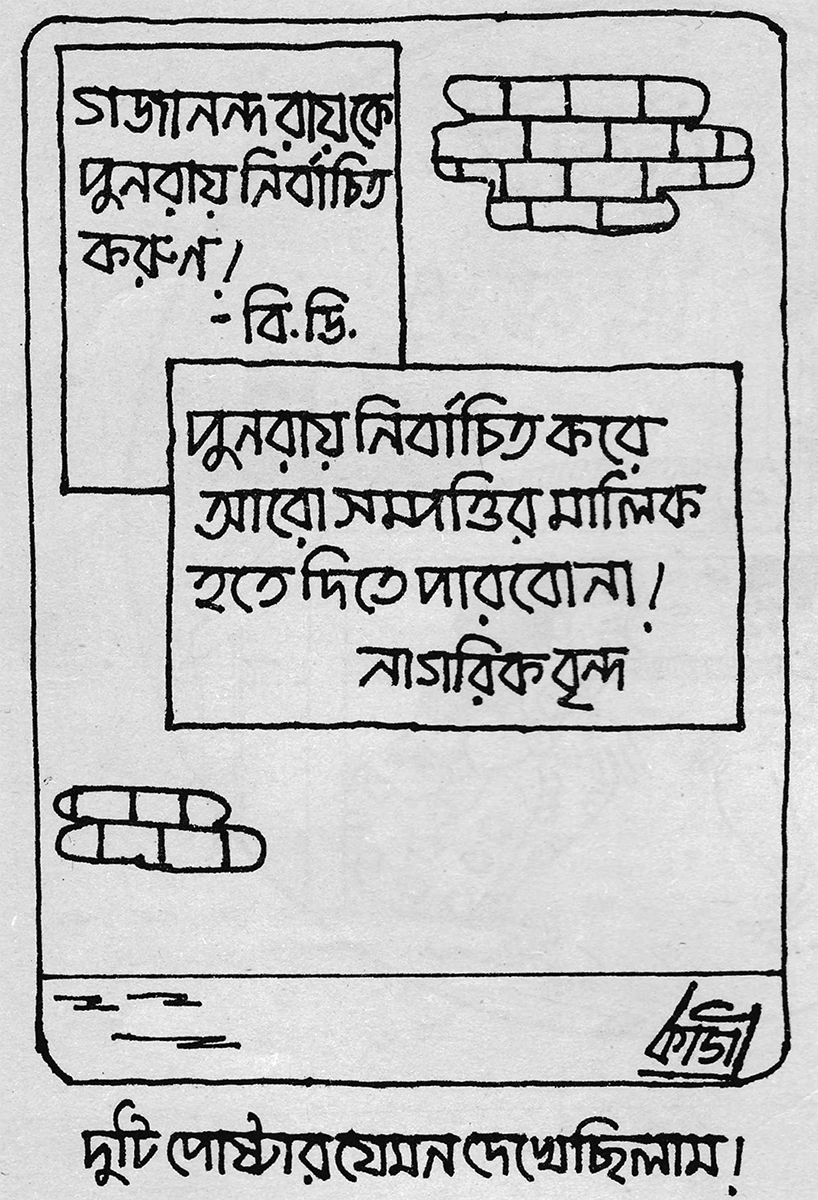 গজানন্দ রায়কে
পুনরায় নির্বাচিত
করুন!
- বি. ডি.
পুনরায় নির্বাচিত করে
আরো সম্পত্তির মালিক
হতে দিতে পারবোনা!
নাগরিক বৃন্দ
কাজী
দুটি পোষ্টার যেমন দেখেছিলাম!